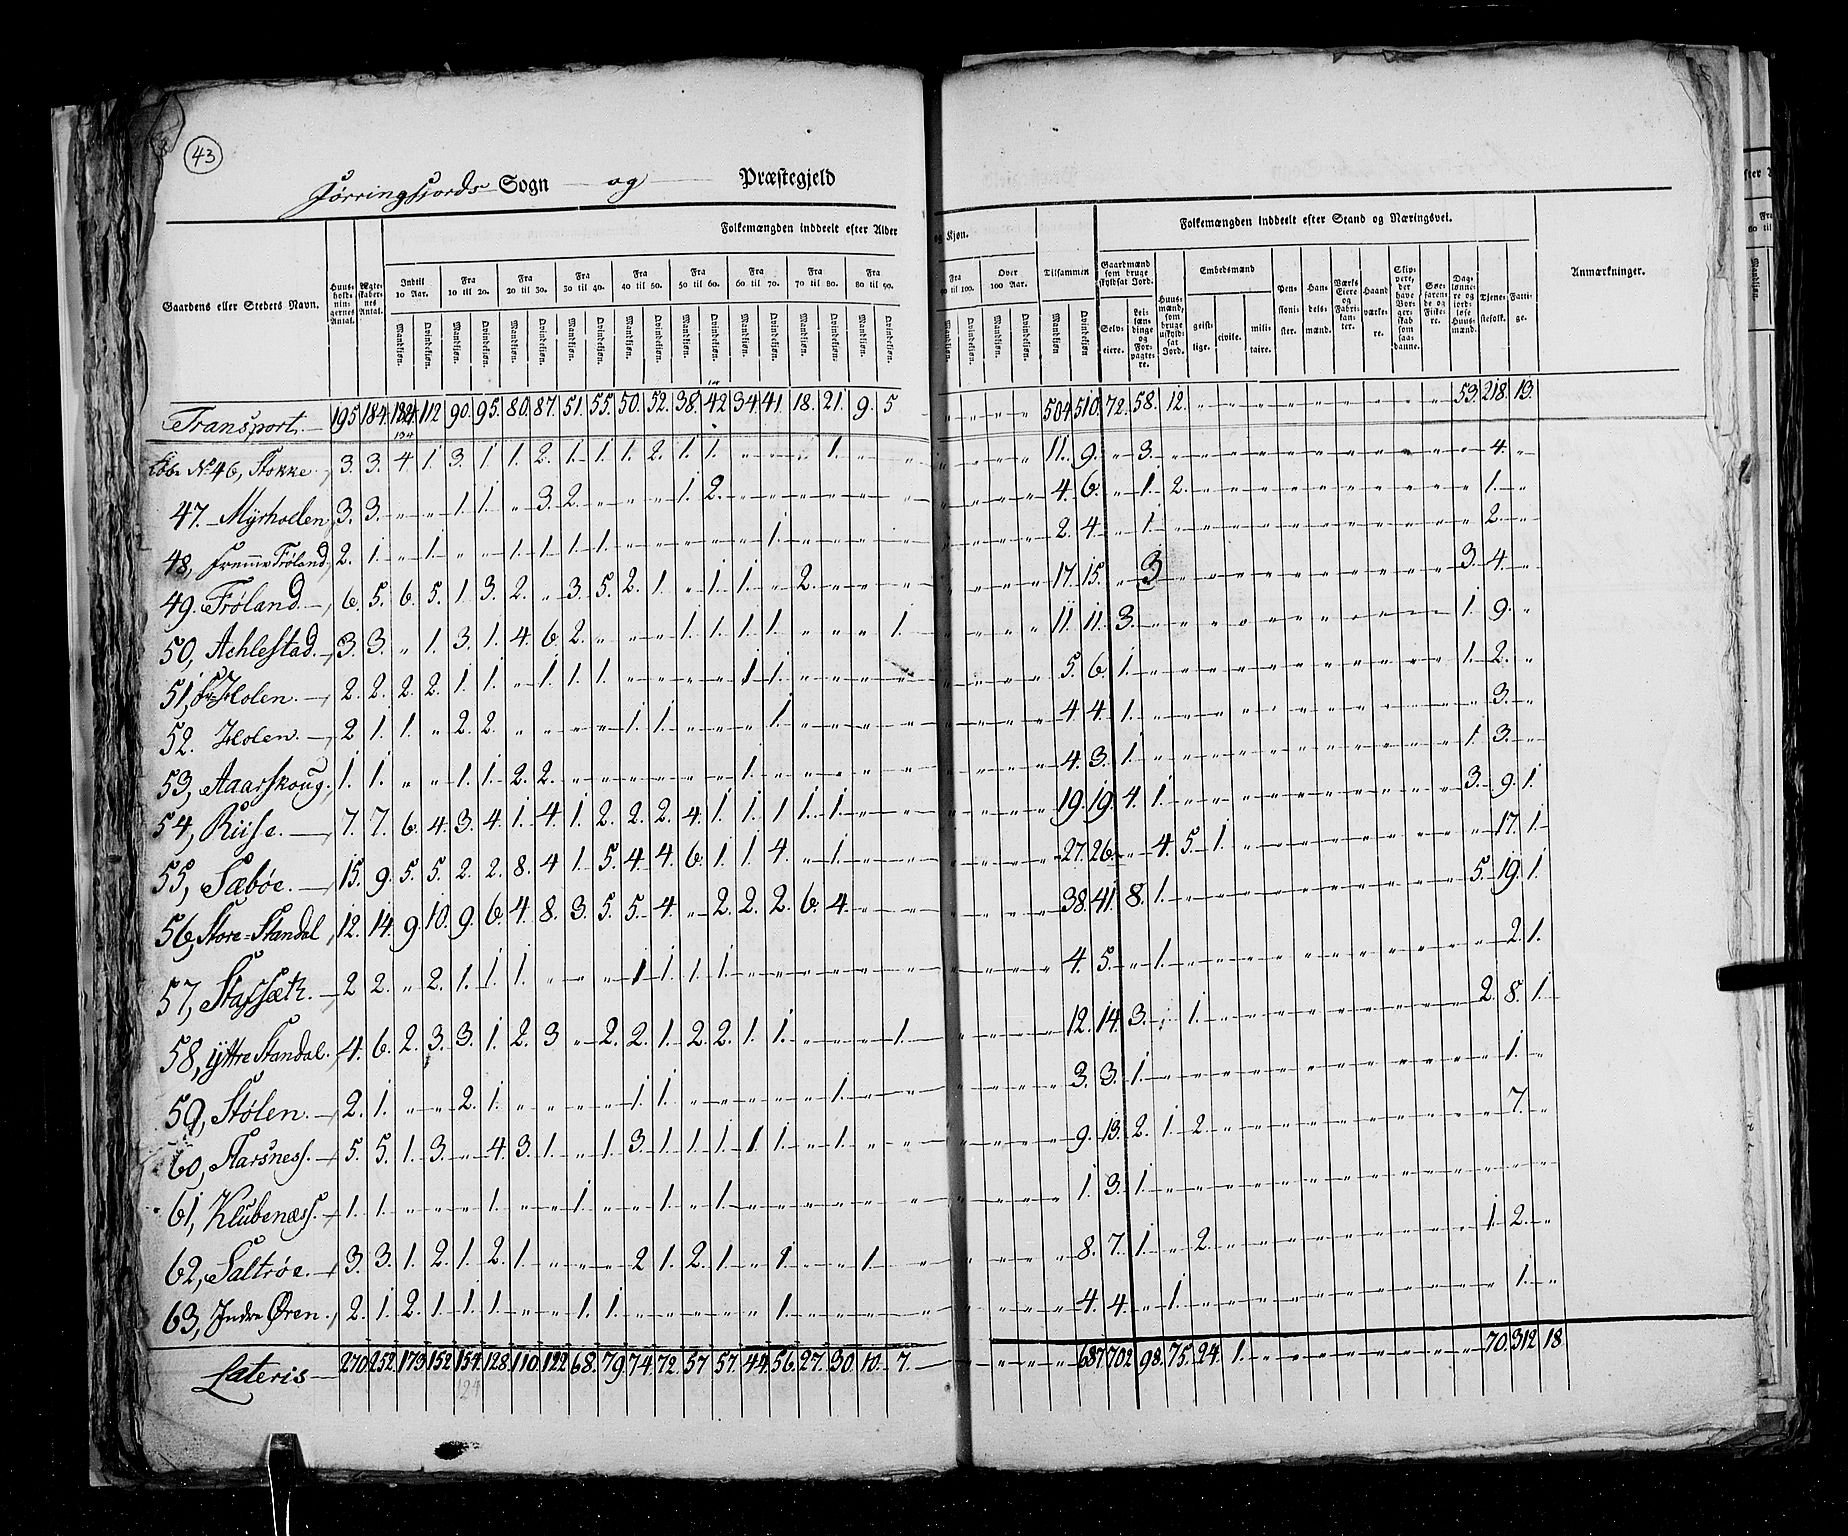 43
Jørringfjords Sogn og Præstegjeld
Gaardens eller Stedets Navn. Huusholdningernes Antal. Ægteskabernes Antal. Folkemængden inddeelt efter Alder og Kjøn. Tilsammen Folkemængden inddeelt efter Stand og Næringsvei. Anmærkninger.
Indtil 10 Aar. Fra 10 til 20. Fra 20 til 30. Fra 30 til 40. Fra 40 til 50. Fra 50 til 60. Fra 60 til 70. Fra 70 til 80. Fra 80 til 90. Fra 90 til 100. Over 100 Aar.
Gaardmænd som bruge skyldsat Jord. Huusmænd, som bruge uskyldsat Jord. Embedsmænd Pensionister. Handelsmænd. Værks Eiere og Fabrikanter. Haandværkere. Skippere, der have Borgerskab som saadanne. Søefarende og Fiskere. Daglønnere og jordløse Huusmænd. Tjenestefolk. Fattige.
Mandkjøn. Qvindekjøn. Mandkjøn. Qvindekjøn. Mandkjøn. Qvindekjøn. Mandkjøn. Qvindekjøn. Mandkjøn. Qvindekjøn. Mandkjøn. Qvindekjøn. Mandkjøn. Qvindekjøn. Mandkjøn. Qvindekjøn. Mandkjøn. Qvindekjøn. Mandkjøn. Qvindekjøn. Mandkjøn. Qvindekjøn. Mandkjøn Qvindekjøn Selveiere. Leilændinge og Forpagtere. geistlige. civile. militaire.
Transport. 195 184. 112 90. 95. 80. 87. 51. 55. 50. 52. 38. 42 34. 41. 18. 21. 9. 5 504 510. 72. 58. 12. 53. 218. 13.
134
Løb. No 46, Stokke. 3. 3. 4 1. 3. 1. 1. 2. 1. 1. 1. 2. 1. 1. „ „ „ 1. „ „ 11. 9. „ 3. 4. „
47. Myrholen 3. 3. „ „ 1. 1. „ 3. 2. „ „ „ 1. 2. 4. 6. „ 1. 2. 1. „
48, Fremr Frøland, 2. 1. „ 1. „ „ 1. 1. 1. 1. 1. 2. 4. „ 1. 2. „
49. Frøland. 6. 5. 6. 5. 1. 3. 2. „ 3. 5. 2. 1. „ 1. 1. „ 2. 17. 15. „ 3 3. 4. „
50, Achlestad. 3. 3. „ 1. 3. 1. 4. 6. 2. „ „ „ 1. 1. 1. 1. „ „ „ 1. 11. 11. 3. 1. 9. „
51, Holen. 2. 2. 2. 2. 1. 1. „ 1. 1. 1. 1 1. 5. 6. 1. 1. 2. „
52. Holen. 2 1. 1. „ 2. 2. „ „ „ „ 1. 1. „ „ „ 1. 4 4. 1. 3. „
53, Aaarskoug. 1. 1. „ „ 1. 1. 2. 2. 1. 4. 3. 1. 1. 3. „
54, Riise. 7. 7. 6. 4. 3. 4. 1. 4. 1. 2. 2. 2. 4. 1. 1. 1. 1. 1. 19. 19. 4. 1. 3. 9. 1
55, Sæbøe. 15. 9. 5. 5. 2. 2. 8. 4 1. 5. 4. 4. 6. 1. 1. 4. „ 1. 27. 26. „ 4. 5. 1. 17. 1.
56, Store-Standal 12. 14. 9. 10. 9. 6. 4. 8. 3. 5. 5. 4. „ 2. 2. 2. 6. 4. 38. 41. 8. 1. 5. 19. 1.
57, Stavsæth. 2 2. „ 2. 1. 1. 1. „ „ „ 1 1. 1. 1. 4. 5. „ 1. 2. 1.
58, Yttre Standal. 4. 6. 2. 3. 3. 1. 2. 3 „ 2. 2. 1. 2. 2. 1. 1. „ „ „ 1. 12. 14. 3. „ 1. 2. 8. 1.
59, Stølen. 2. 1. „ „ 2. 1. „ „ „ „ 1. 1. „ „ „ „ „ 1. 3. 3. 1. 1. „
60, Starsness. 5. 5. 1. 3. „ 4. 3. 1. „ 1. 3. 1. 1. 1. 1 1. „ 1. 9. 13. 2. 1. 2. 7. „
61, Klubenæss. 1. 1. „ „ „ 1. „ „ 1. „ „ 1. „ 1. 1. 3. 1.
62, Saltrøe. 3. 3. 1. 2. 1. 2. 1. „ „ „ 2 1. 2. 1. „ 1. „ „ 1. „ 8. 7. 1. „ 2. 1. 2. „
63, Indre Øren. 2. 1. 2. 1. 1. 1. „ „ 1. 1. „ „ „ „ „ 1. 4. 4. „ 1. 1. „
Lateris 270. 252. 173. 152. 154. 128. 110. 122. 68. 79. 74. 72. 57 57. 44. 56. 27. 30. 10. 7. 687 702. 98. 75. 24. 1. 70. 312. 18.
124